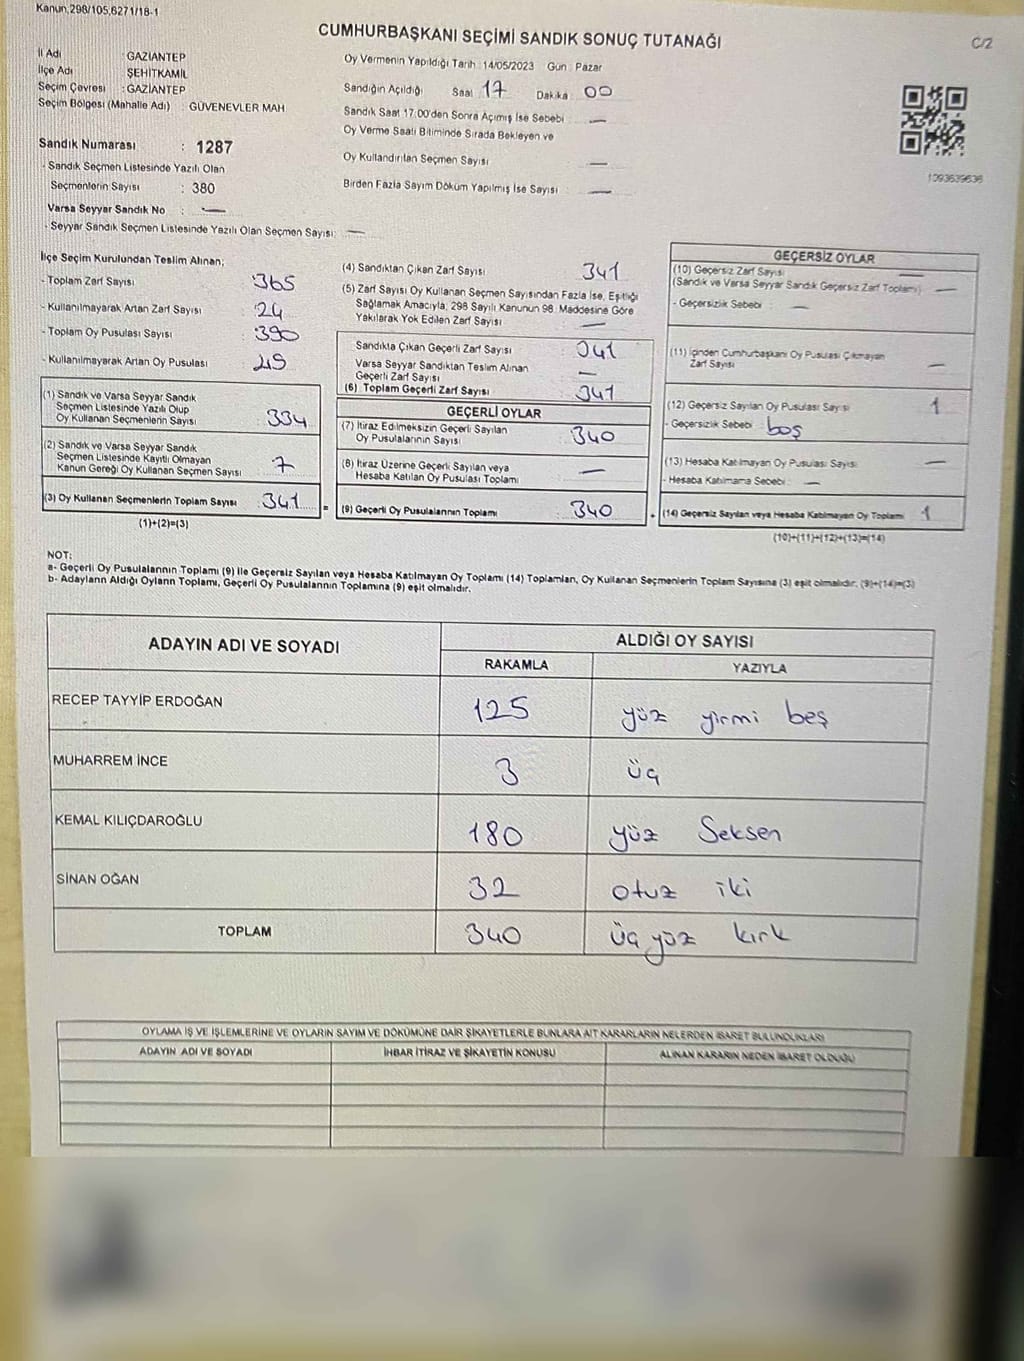 Kanun,298/105,6271/18-1
CUMHURBAŞKANI SEÇİMİ SANDIK SONUÇ TUTANAĞI
C/2
İl Adı : GAZİANTEP
İlçe Adı : ŞEHİTKAMİL
Seçim Çevresi : GAZİANTEP
Seçim Bölgesi (Mahalle Adı) : GÜVENEVLER MAH
Oy Vermenin Yapıldığı Tarih : 14/05/2023 Gün : Pazar
Sandığın Açıldığı Saat 17 Dakika : 00
Sandık Saat 17.00'den Sonra Açılmış İse Sebebi : —
Oy Verme Saati Bitiminde Sırada Bekleyen ve
Oy Kullandırılan Seçmen Sayısı —
Birden Fazla Sayım Döküm Yapılmış İse Sayısı : —
1293639636
Sandık Numarası : 1287
- Sandık Seçmen Listesinde Yazılı Olan
Seçmenlerin Sayısı : 380
Varsa Seyyar Sandık No : —
- Seyyar Sandık Seçmen Listesinde Yazılı Olan Seçmen Sayısı: —
İlçe Seçim Kurulundan Teslim Alınan;
- Toplam Zarf Sayısı : 365
- Kullanılmayarak Artan Zarf Sayısı : 24
- Toplam Oy Pusulası Sayısı : 390
- Kullanılmayarak Artan Oy Pusulası : 49
(1) Sandık ve Varsa Seyyar Sandık
Seçmen Listesinde Yazılı Olup
Oy Kullanan Seçmenlerin Sayısı : 334
(2) Sandık ve Varsa Seyyar Sandık
Seçmen Listesinde Kayıtlı Olmayan
Kanun Gereği Oy Kullanan Seçmen Sayısı : 7
(3) Oy Kullanan Seçmenlerin Toplam Sayısı : 341
(1)+(2)=(3)
(4) Sandıktan Çıkan Zarf Sayısı : 341
(5) Zarf Sayısı Oy Kullanan Seçmen Sayısından Fazla İse, Eşitliği
Sağlamak Amacıyla, 298 Sayılı Kanunun 98. Maddesine Göre
Yakılarak Yok Edilen Zarf Sayısı : —
Sandıkta Çıkan Geçerli Zarf Sayısı : 341
Varsa Seyyar Sandıktan Teslim Alınan
Geçerli Zarf Sayısı : —
(6) Toplam Geçerli Zarf Sayısı : 341
GEÇERLİ OYLAR
(7) İtiraz Edilmeksizin Geçerli Sayılan
Oy Pusulalarının Sayısı : 340
(8) İtiraz Üzerine Geçerli Sayılan veya
Hesaba Katılan Oy Pusulası Toplamı : —
(9) Geçerli Oy Pusulalarının Toplamı : 340
GEÇERSİZ OYLAR
(10) Geçersiz Zarf Sayısı : —
(Sandık ve Varsa Seyyar Sandık Geçersiz Zarf Toplamı) —
- Geçersizlik Sebebi : —
(11) İçinden Cumhurbaşkanı Oy Pusulası Çıkmayan
Zarf Sayısı : —
(12) Geçersiz Sayılan Oy Pusulası Sayısı : 1
- Geçersizlik Sebebi : boş
(13) Hesaba Katılmayan Oy Pusulası Sayısı : —
- Hesaba Katılmama Sebebi : —
(14) Geçersiz Sayılan veya Hesaba Katılmayan Oy Toplamı : 1
(10)+(11)+(12)+(13)=(14)
NOT:
a- Geçerli Oy Pusulalarının Toplamı (9) İle Geçersiz Sayılan veya Hesaba Katılmayan Oy Toplamı (14) Toplamları, Oy Kullanan Seçmenlerin Toplam Sayısına (3) eşit olmalıdır. (9)+(14)=(3)
b- Adayların Aldığı Oyların Toplamı, Geçerli Oy Pusulalarının Toplamına (9) eşit olmalıdır.
ADAYIN ADI VE SOYADI ALDIĞI OY SAYISI
RAKAMLA YAZIYLA
RECEP TAYYİP ERDOĞAN 125 yüz yirmi beş
MUHARREM İNCE 3 üç
KEMAL KILIÇDAROĞLU 180 yüz Seksen
SİNAN OĞAN 32 otuz iki
TOPLAM 340 üç yüz kırk
OYLAMA İŞ VE İŞLEMLERİNE VE OYLARIN SAYIM VE DÖKÜMÜNE DAİR ŞİKAYETLERLE BUNLARA AİT KARARLARIN NELERDEN İBARET BULUNDUKLARI
ADAYIN ADI VE SOYADI İHBAR İTİRAZ VE ŞİKAYETİN KONUSU ALINAN KARARIN NEDEN İBARET OLDUĞU